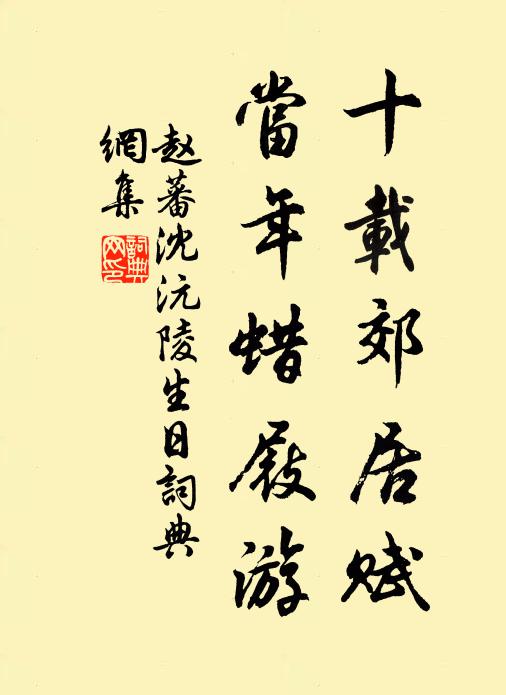 十載郊居賦
當年蜡屐游
赵蕃沈沅陵生日詞典
網集
詞典网印